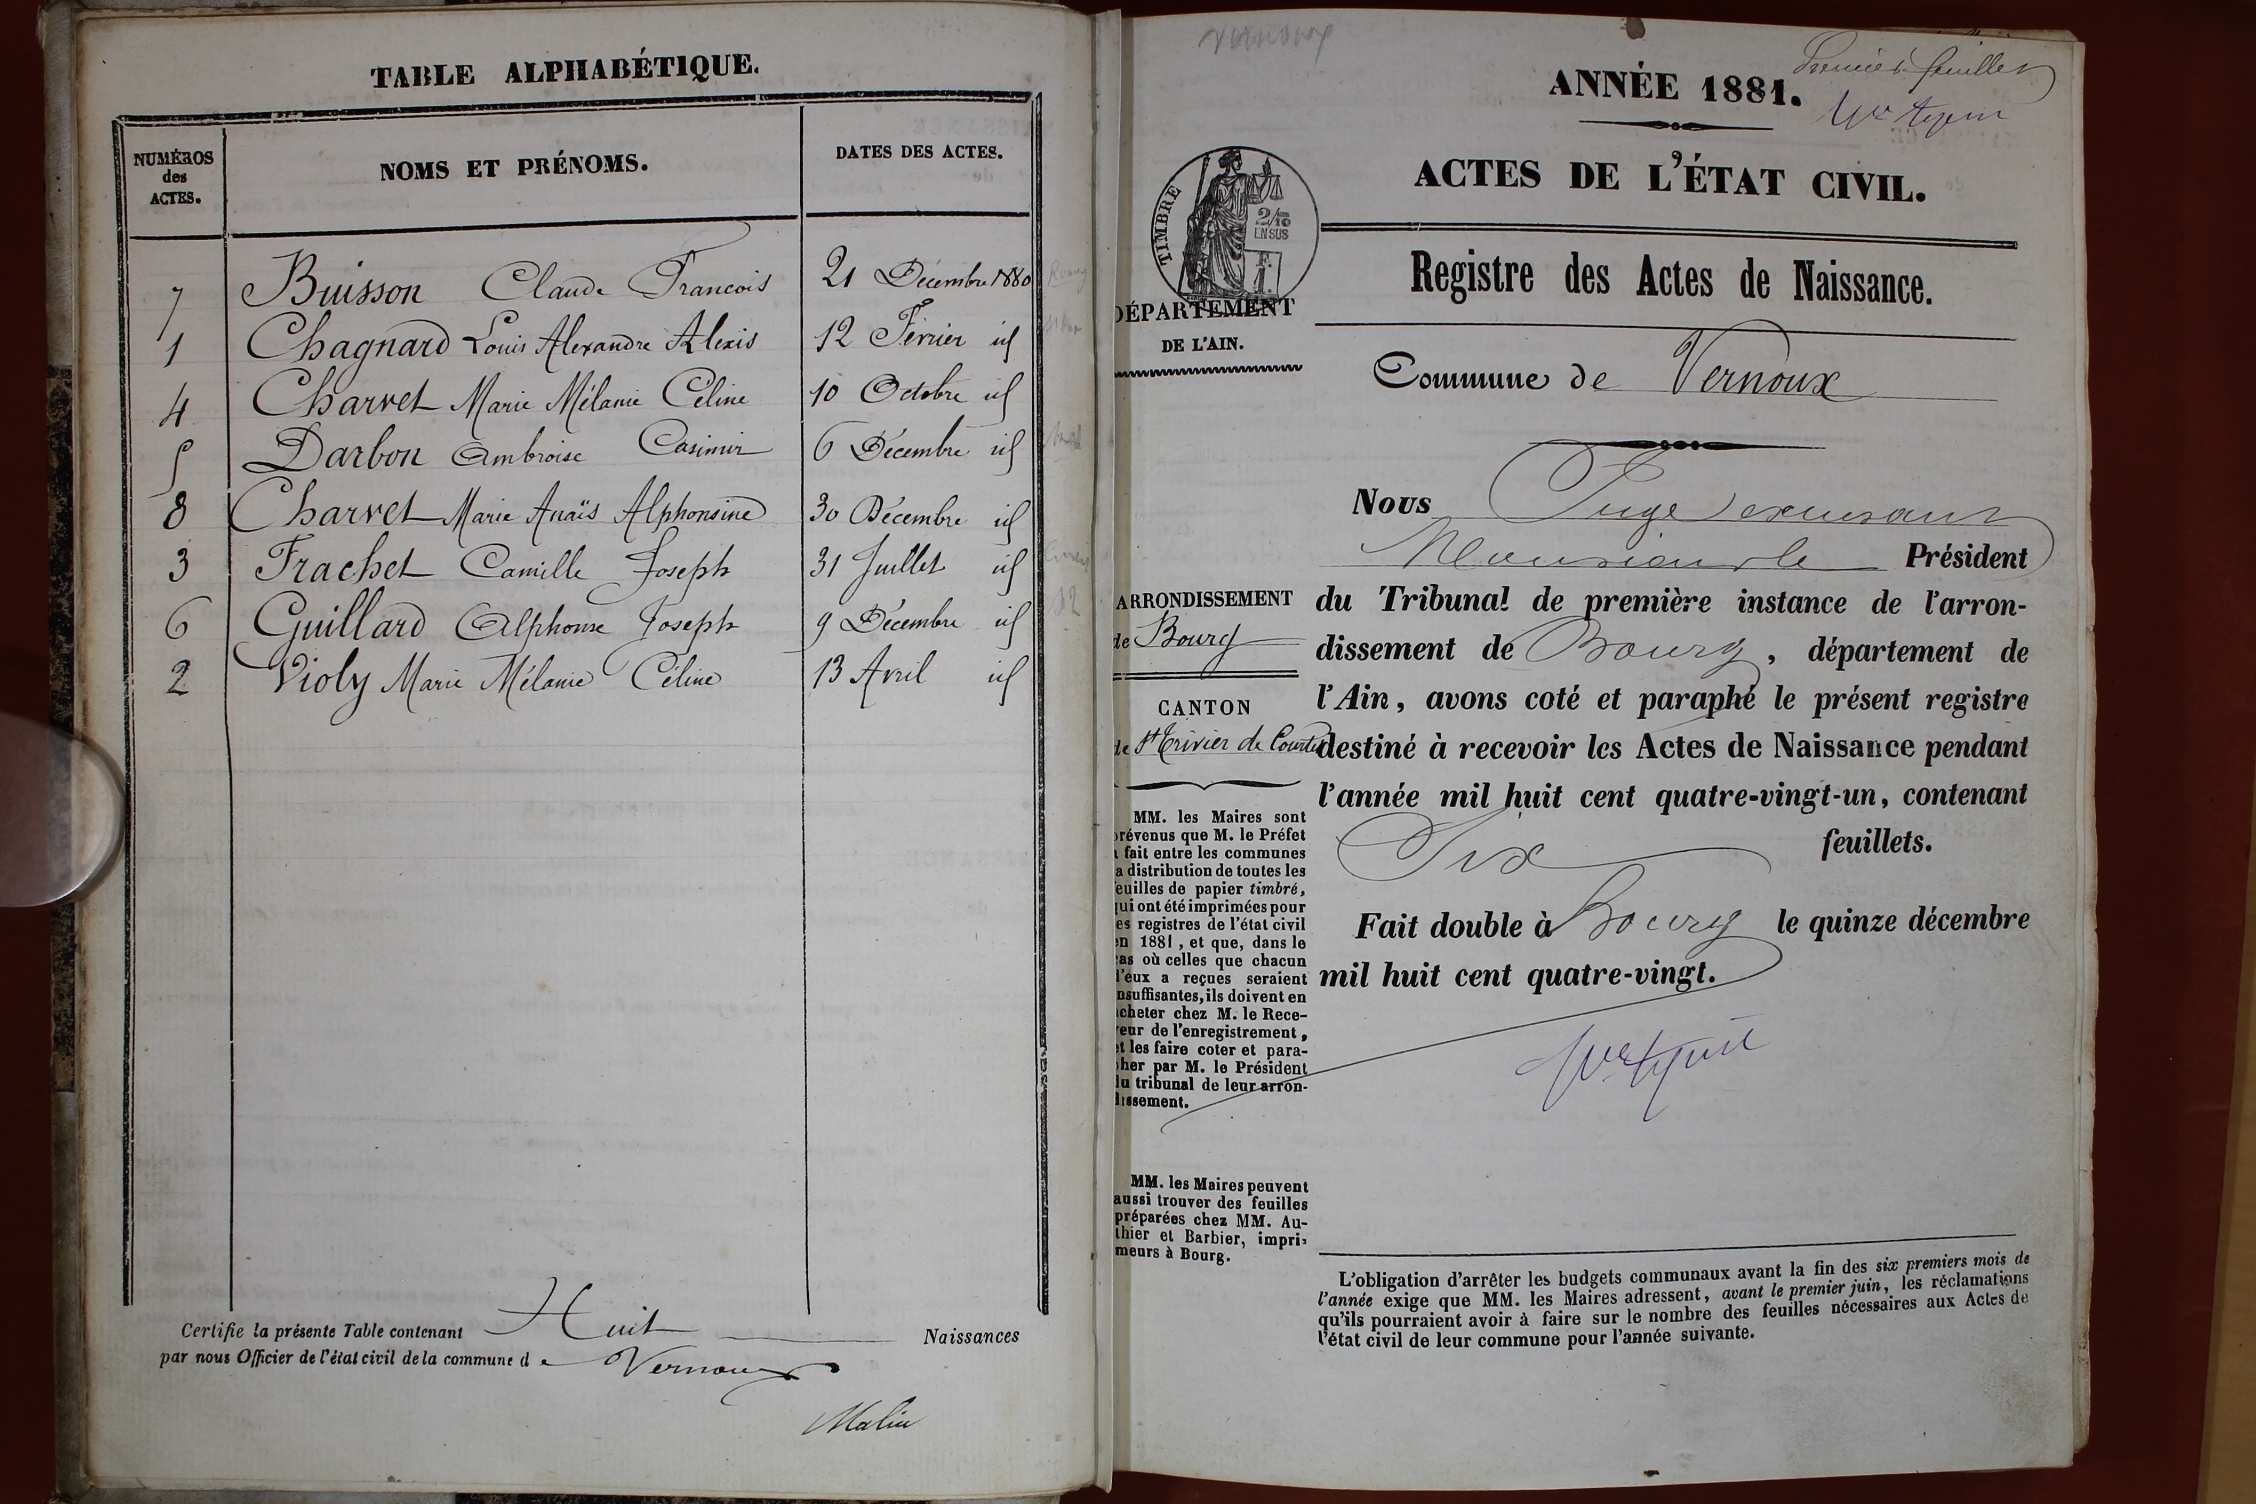 TABLE ALPHABÉTIQUE.
NUMÉROS des ACTES.
NOMS ET PRÉNOMS.
DATES DES ACTES.
7 Buisson Claude Francois 21 Décembre 1880
1 Chagnard Louis Alexandre Alexis 12 Février id
4 Charvet Marie Mélanie Céline 10 Octobre id
5 Darbon Ambroise Casimir 6 Décembre id
8 Charvet Marie Anaïs Alphonsine 30 Décembre id
3 Frachet Camille Joseph 31 Juillet id
6 Guillard Alphonse Joseph 9 Décembre id
2 Violy Marie Mélanie Céline 13 Avril id
Certifie la présente Table contenant Huit Naissances
par nous Officier de l'état civil de la commune de Vernoux
Vernoux
Premier feuillet
ANNÉE 1881.
ACTES DE L'ÉTAT CIVIL.
TIMBRE
2/10
EN SUS
F.
1.
DÉPARTEMENT
DE L'AIN.
Registre des Actes de Naissance.
Commune de Vernoux
ARRONDISSEMENT
de Bourg
CANTON
de St Trivier de Courtes
MM. les Maires sont
prévenus que M. le Préfet
a fait entre les communes
la distribution de toutes les
feuilles de papier timbré,
qui ont été imprimées pour
les registres de l'état civil
en 1881, et que, dans le
cas où celles que chacun
d'eux a reçues seraient
insuffisantes, ils doivent en
acheter chez M. le Rece-
veur de l'enregistrement,
et les faire coter et para-
pher par M. le Président
du tribunal de leur arron-
dissement.
MM. les Maires peuvent
aussi trouver des feuilles
préparées chez MM. Au-
thier et Barbier, impri-
meurs à Bourg.
Nous Juge
Monsieur le Président
du Tribunal de première instance de l'arron-
dissement de Bourg, département de
l'Ain, avons coté et paraphé le présent registre
destiné à recevoir les Actes de Naissance pendant
l'année mil huit cent quatre-vingt-un, contenant
Six feuillets.
Fait double à Bourg le quinze décembre
mil huit cent quatre-vingt.
L'obligation d'arrêter les budgets communaux avant la fin des six premiers mois de
l'année exige que MM. les Maires adressent, avant le premier juin, les réclamations
qu'ils pourraient avoir à faire sur le nombre des feuilles nécessaires aux Actes de
l'état civil de leur commune pour l'année suivante.